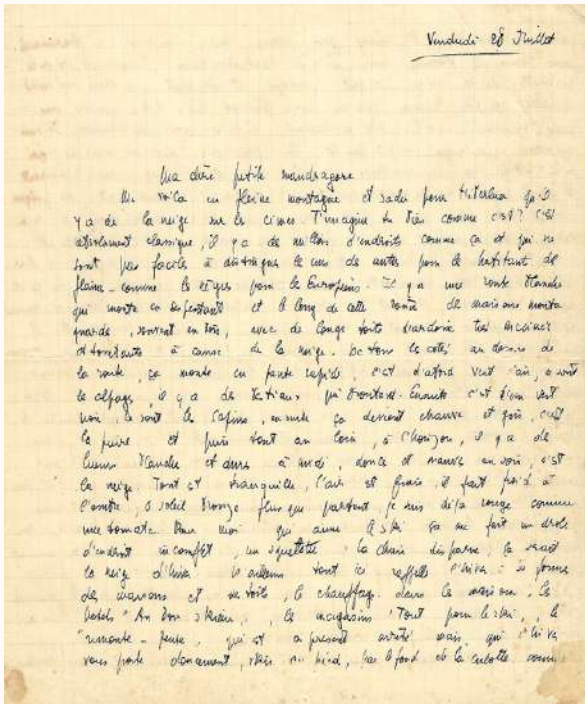 Vendredi 28 Juillet
Ma chère petite mandragore
Me voilà en pleine montagne et
y a de la neige sur les cimes. T'imagines tu bien comme c'est ? C'est
absolument classique, il y a des milliers d'endroits comme ça et qui ne
sont pas faciles à distinguer les uns des autres pour le habitant de
plaine - comme les nègres pour les Européens. Il y a une route blanche
qui monte en serpentant et le long de cette route de maisons monta
gnardes, souvent en bois, avec de longs toits d'ardoise très inclinés
et à cause de la neige. De tous les côtés au dessus de
la route, ça monte en pente rapide, c'est d'abord vert clair, ce sont
le alpages, il y a des qui broutent. Ensuite c'est d'un vert
noir, ce sont les sapins, ensuite ça devient chauve et gris, c'est
la pierre et puis tout au loin, à l'horizon, il y a de
lueurs blanches et dures à midi, douces et mauves au soir, c'est
la neige. Tout est tranquille, l'air est frais, il fait froid à
l'ombre, le soleil bronze plus que partout, je suis déjà rouge comme
une tomate. Pour moi qui aime le ski ça me fait un drôle
d'endroit incomplet, un squelette : la chair disparue, ça serait
la neige d'hiver. D'ailleurs tout ici rappelle l'hiver : la forme
des maisons et des toits, le chauffage dans les maisons, les
hotels "Au bon skieur", les magasins "Tout pour le ski", le
"remonte-pente", qui est à présent arrêté mais qui l'hiver
vous porte doucement, skis au pied, par le fond de la culotte comme